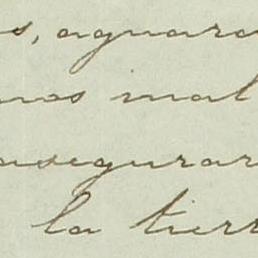 s, aguarda
nos mal
asegurar
la tierr